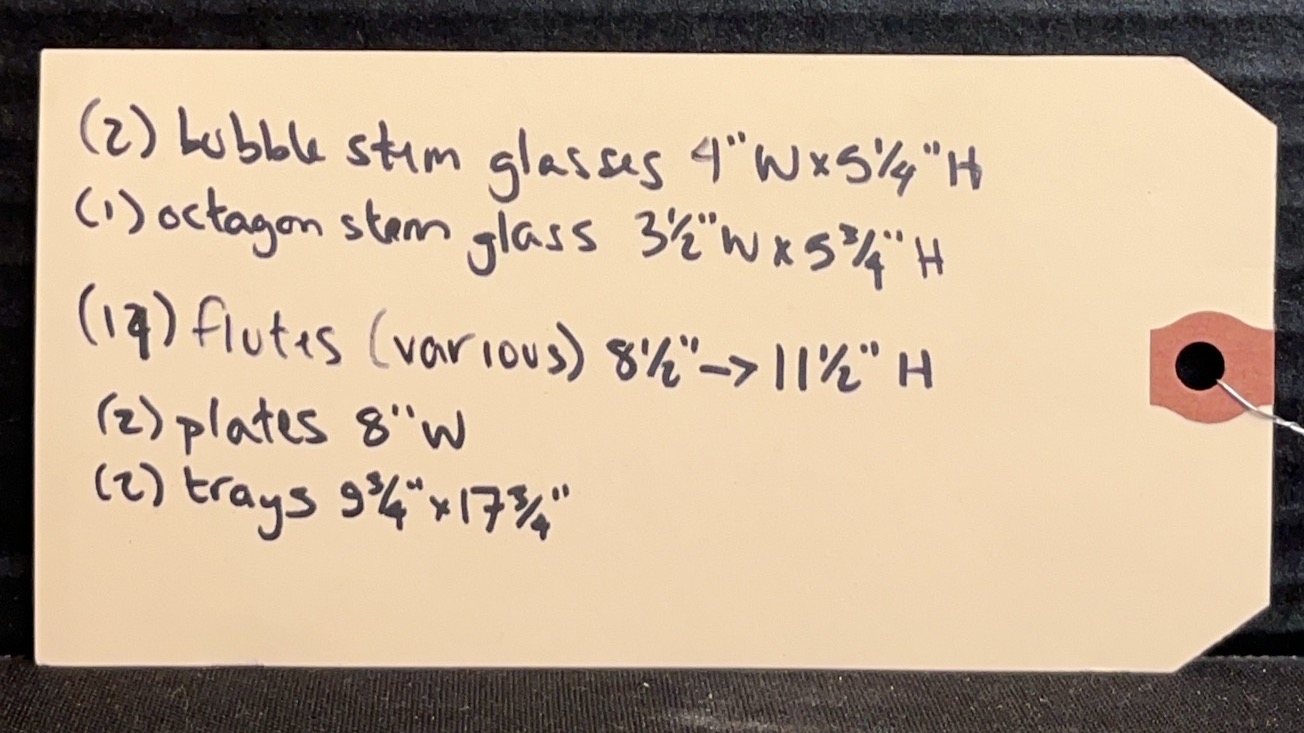 (2) bubble stem glasses 4" W x 5 1/4" H
(1) octagon stem glass 3 1/2" W x 5 3/4" H
flutes (various) 8 1/2" -> 11 1/2" H
(2) plates 8" W
(2) trays 9 3/4" x 17 3/4"